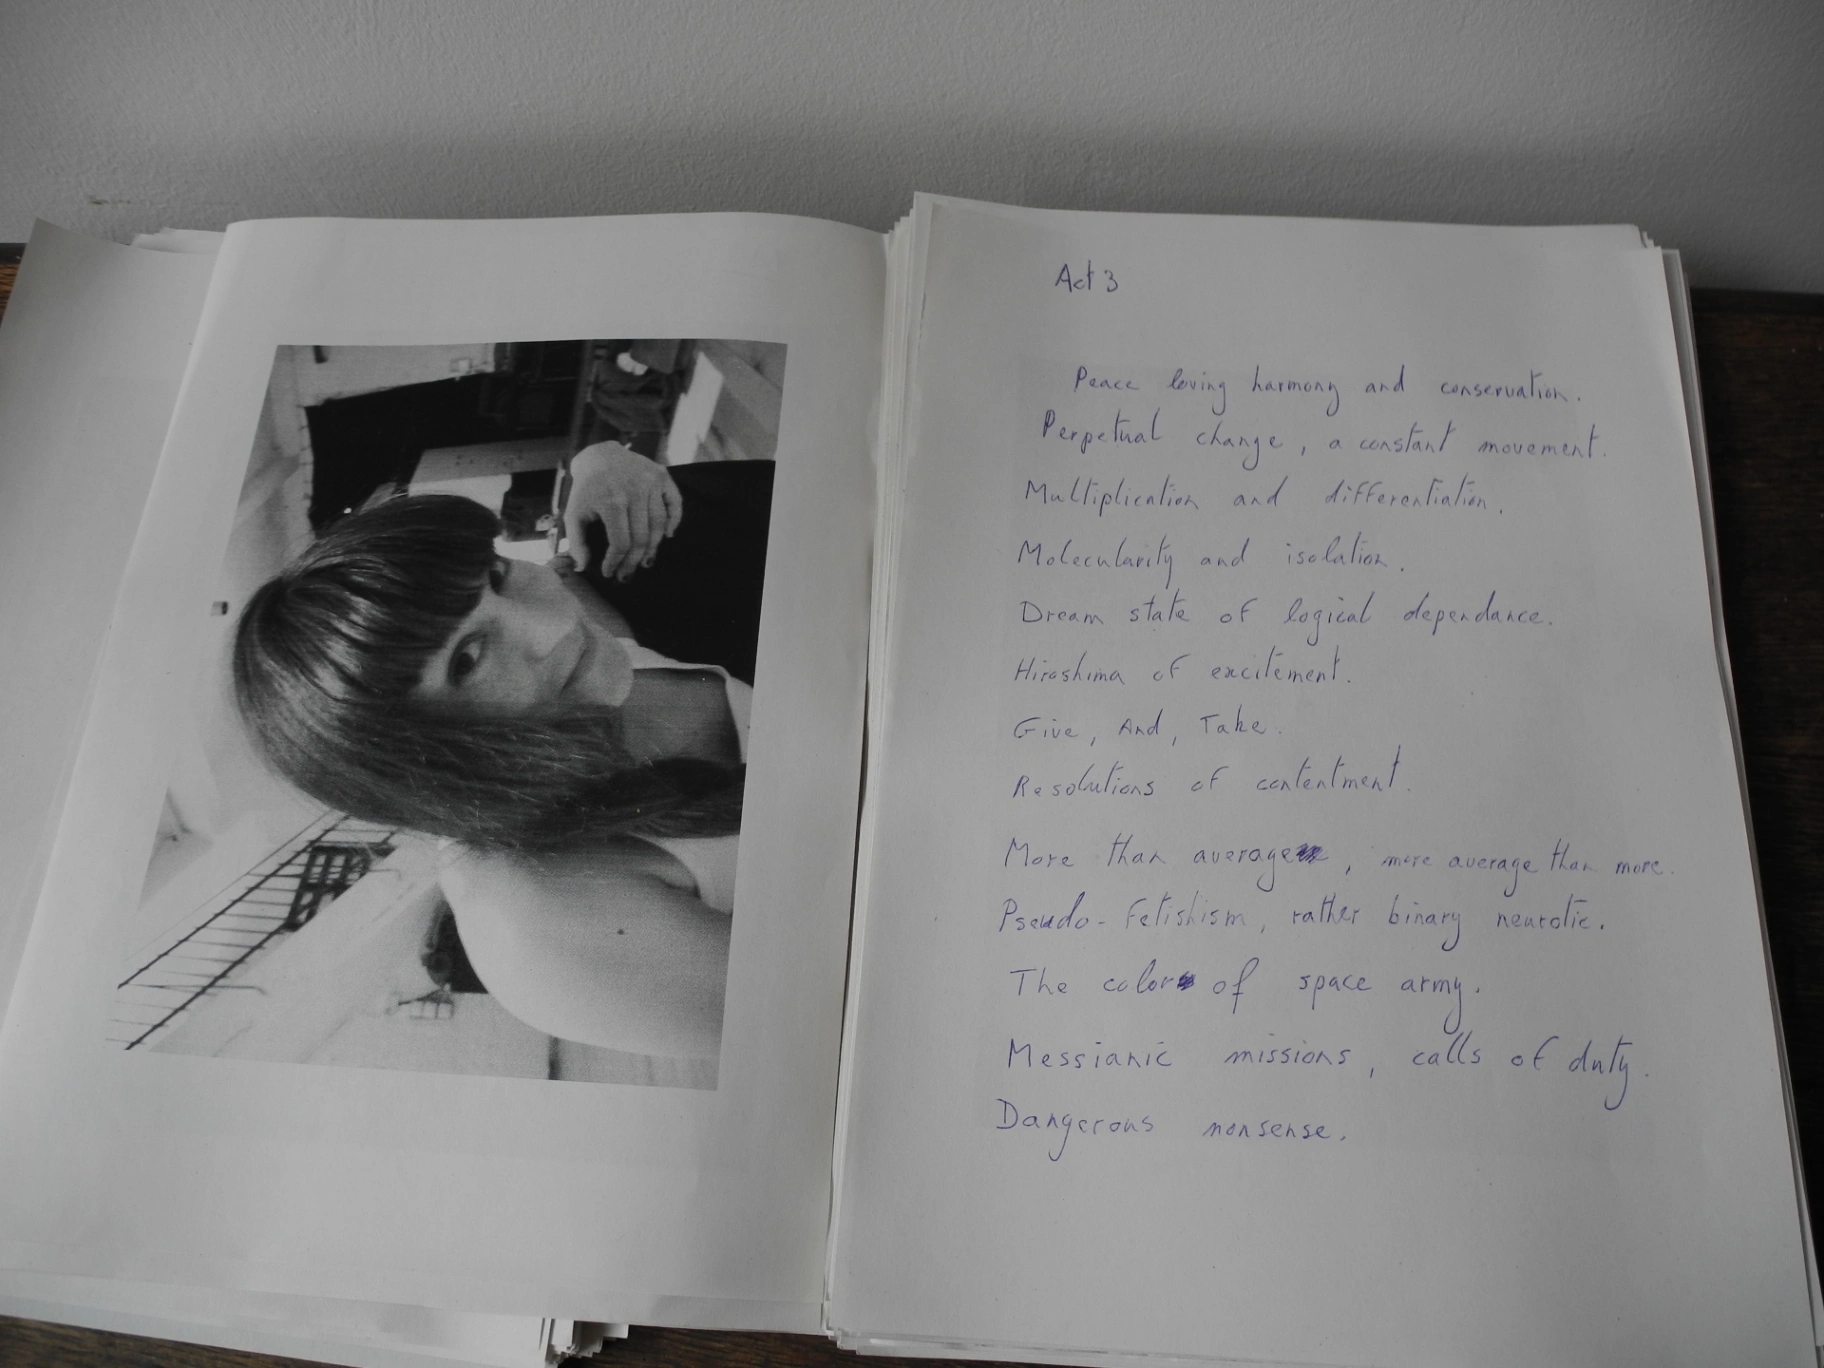 Act 3
Peace loving harmony and conservation.
Perpetual change, a constant movement.
Multiplication and differentiation.
Molecularity and isolation.
Dream state of logical dependance.
Hiroshima of excitement.
Give, And, Take.
Resolutions of contentment.
More than average, more average than more.
Pseudo-Fetishism, rather binary neurotic.
The color of space army.
Messianic missions, calls of duty.
Dangerous nonsense.